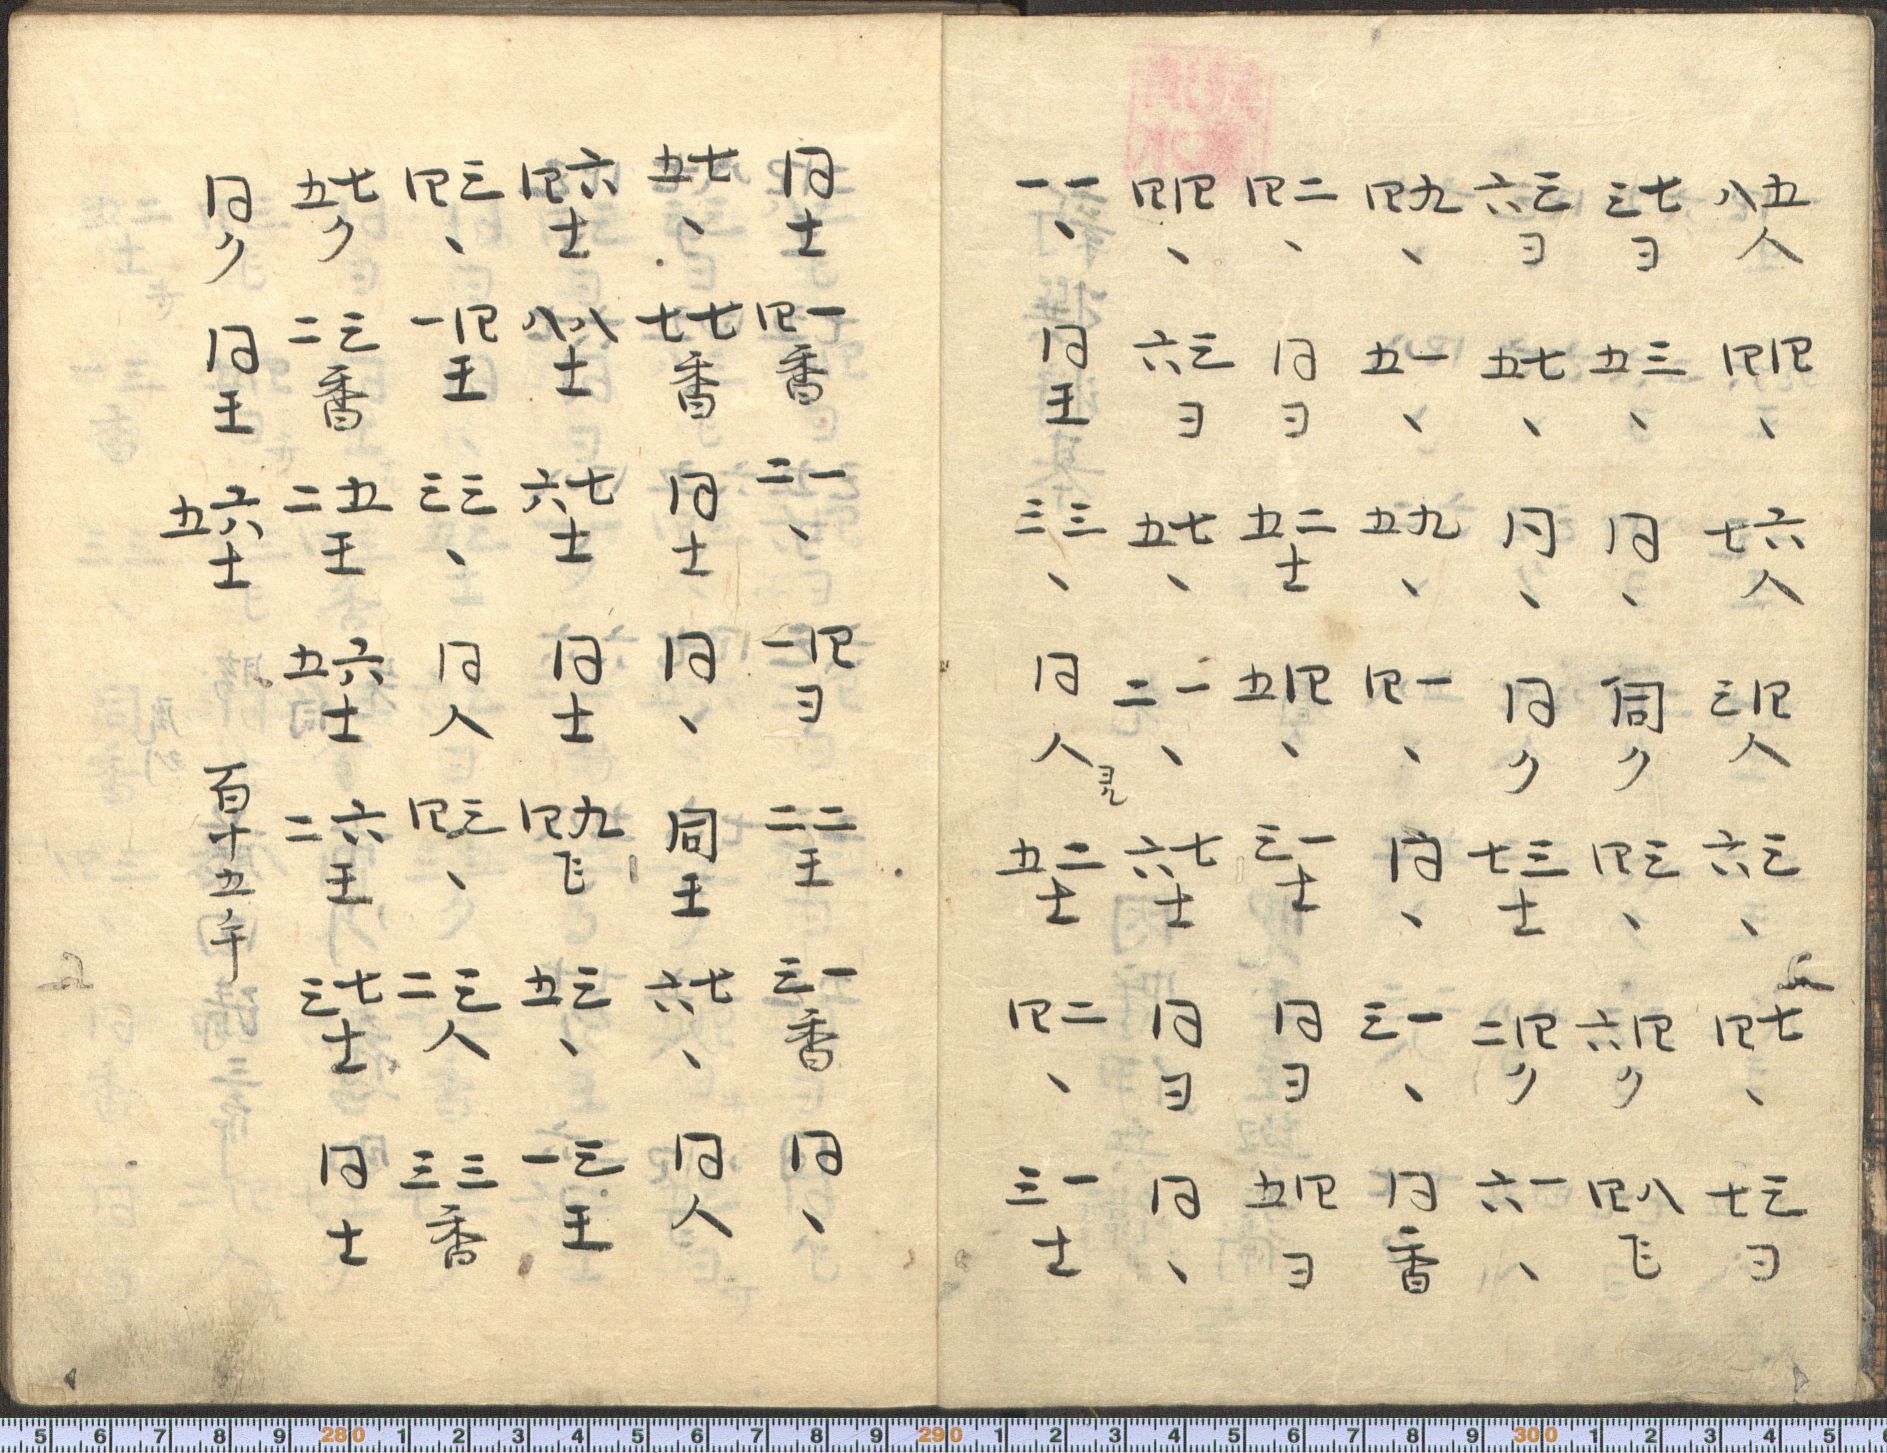 五八人 四四、 六七人 四三人 三六、 七四、 三七ヨ
七三ヨ 三五、 同、 同ク 三四、 四六ク 八四飞
三六ヨ 七五、 同、 同ク 三七士 四二ク 一六、
九四、 一五、 九五、 一四、 同、 一三、 同香
二四、 同ヨ 二五士 四五、 一三士 同ヨ 四五ヨ
四四、 三六ヨ 七五、 一二、 七六士 同ヨ 同、
一一、 同王 三三、 同人 二五士 二四、 一三士
同士 一四香 一二、 四一ヨ 二二王 一三香 同、
七五、 七七香 同士 同、 同王 七六、 同人
六四士 八八士 七六士 同士 九四飞 三五、 三一王
三四、 四一王 三三、 同人 三四、 三二人 三三香
七五ク 三二香 五二王 六五士 六二王 七三士 同士
同ク 同王 六五士 百十五手